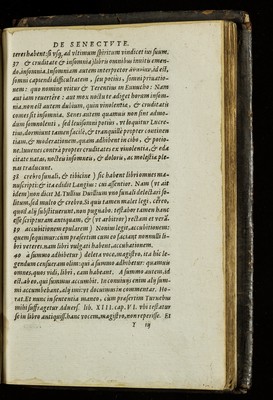 DE SENECTVTE.
teres habent: si vsq, ad vltimum spiritum vindicet ius suum.
37 & cruditate & insomniis) libris omnibus inuitis emen-
do, insomnia. Insomniam autem interpretor ἀϋπνίαν, id est,
somni capiendi difficultatem, seu potius, somni priuatio-
nem: quo nomine vtitur & Terentius in Eunucho: Nam
aut iam reuertère: aut mox noctu te adiget horsum insom-
nia. non est autem dubium, quin vinolentia, & cruditati
comes sit insomnia. Senes autem quamuis non sint admo-
dum somnolenti, sed leuissomni potius, vt loquitur Lucre-
tius, dormiunt tamen facilè, & tranquillè propter continen
tiam, & moderationem, quam adhibent in cibo, & potio-
ne. Iuuenes contrà propter cruditates ex vinolentia, & eda
citate natas, noctes insomnes, & doloris, ac molestiæ ple-
nas traducunt.
38 crebro funali, & tibicine) sic habent libri omnes ma-
nuscripti: & ita edidit Langius: cui assentior. Nam (vt ait
idem) non dicit M. Tullius Duellium vno funali delectari so-
litum, sed multo & crebro. Si quis tamen malet legi, cereo,
quod alij substituerunt, non pugnabo. testabor tamen hanc
esse scripturam antiquam, & (vt arbitror) rectam et verā.
39 accubitionem epularem) Nonius legit, accubitionem:
quem sequimur. cùm præsertim cum eo faciant nonnulli li-
bri veteres. nam libri vulgati habent, accubationem.
40 a summo adhibetur) deleta voce, magistro, ita hic le-
gendum censueram olim: qui à summo adhibetur: quamuis
omnes, quos vidi, libri, eam habeant. A summo autem. id
est. ab eo, qui summus accumbit. In conuiuijs enim alij sum-
mi accumbebant, alij imi: vt docuimus in commentar. Ho-
rat. Et nunc in sententia maneo, cùm præsertim Turnebus
mihi suffragetur Aduers. lib. XIII. cap. VI. vbi testatur
se in libro antiquiss. hanc vocem, magistro, non reperisse. Et
Y iij